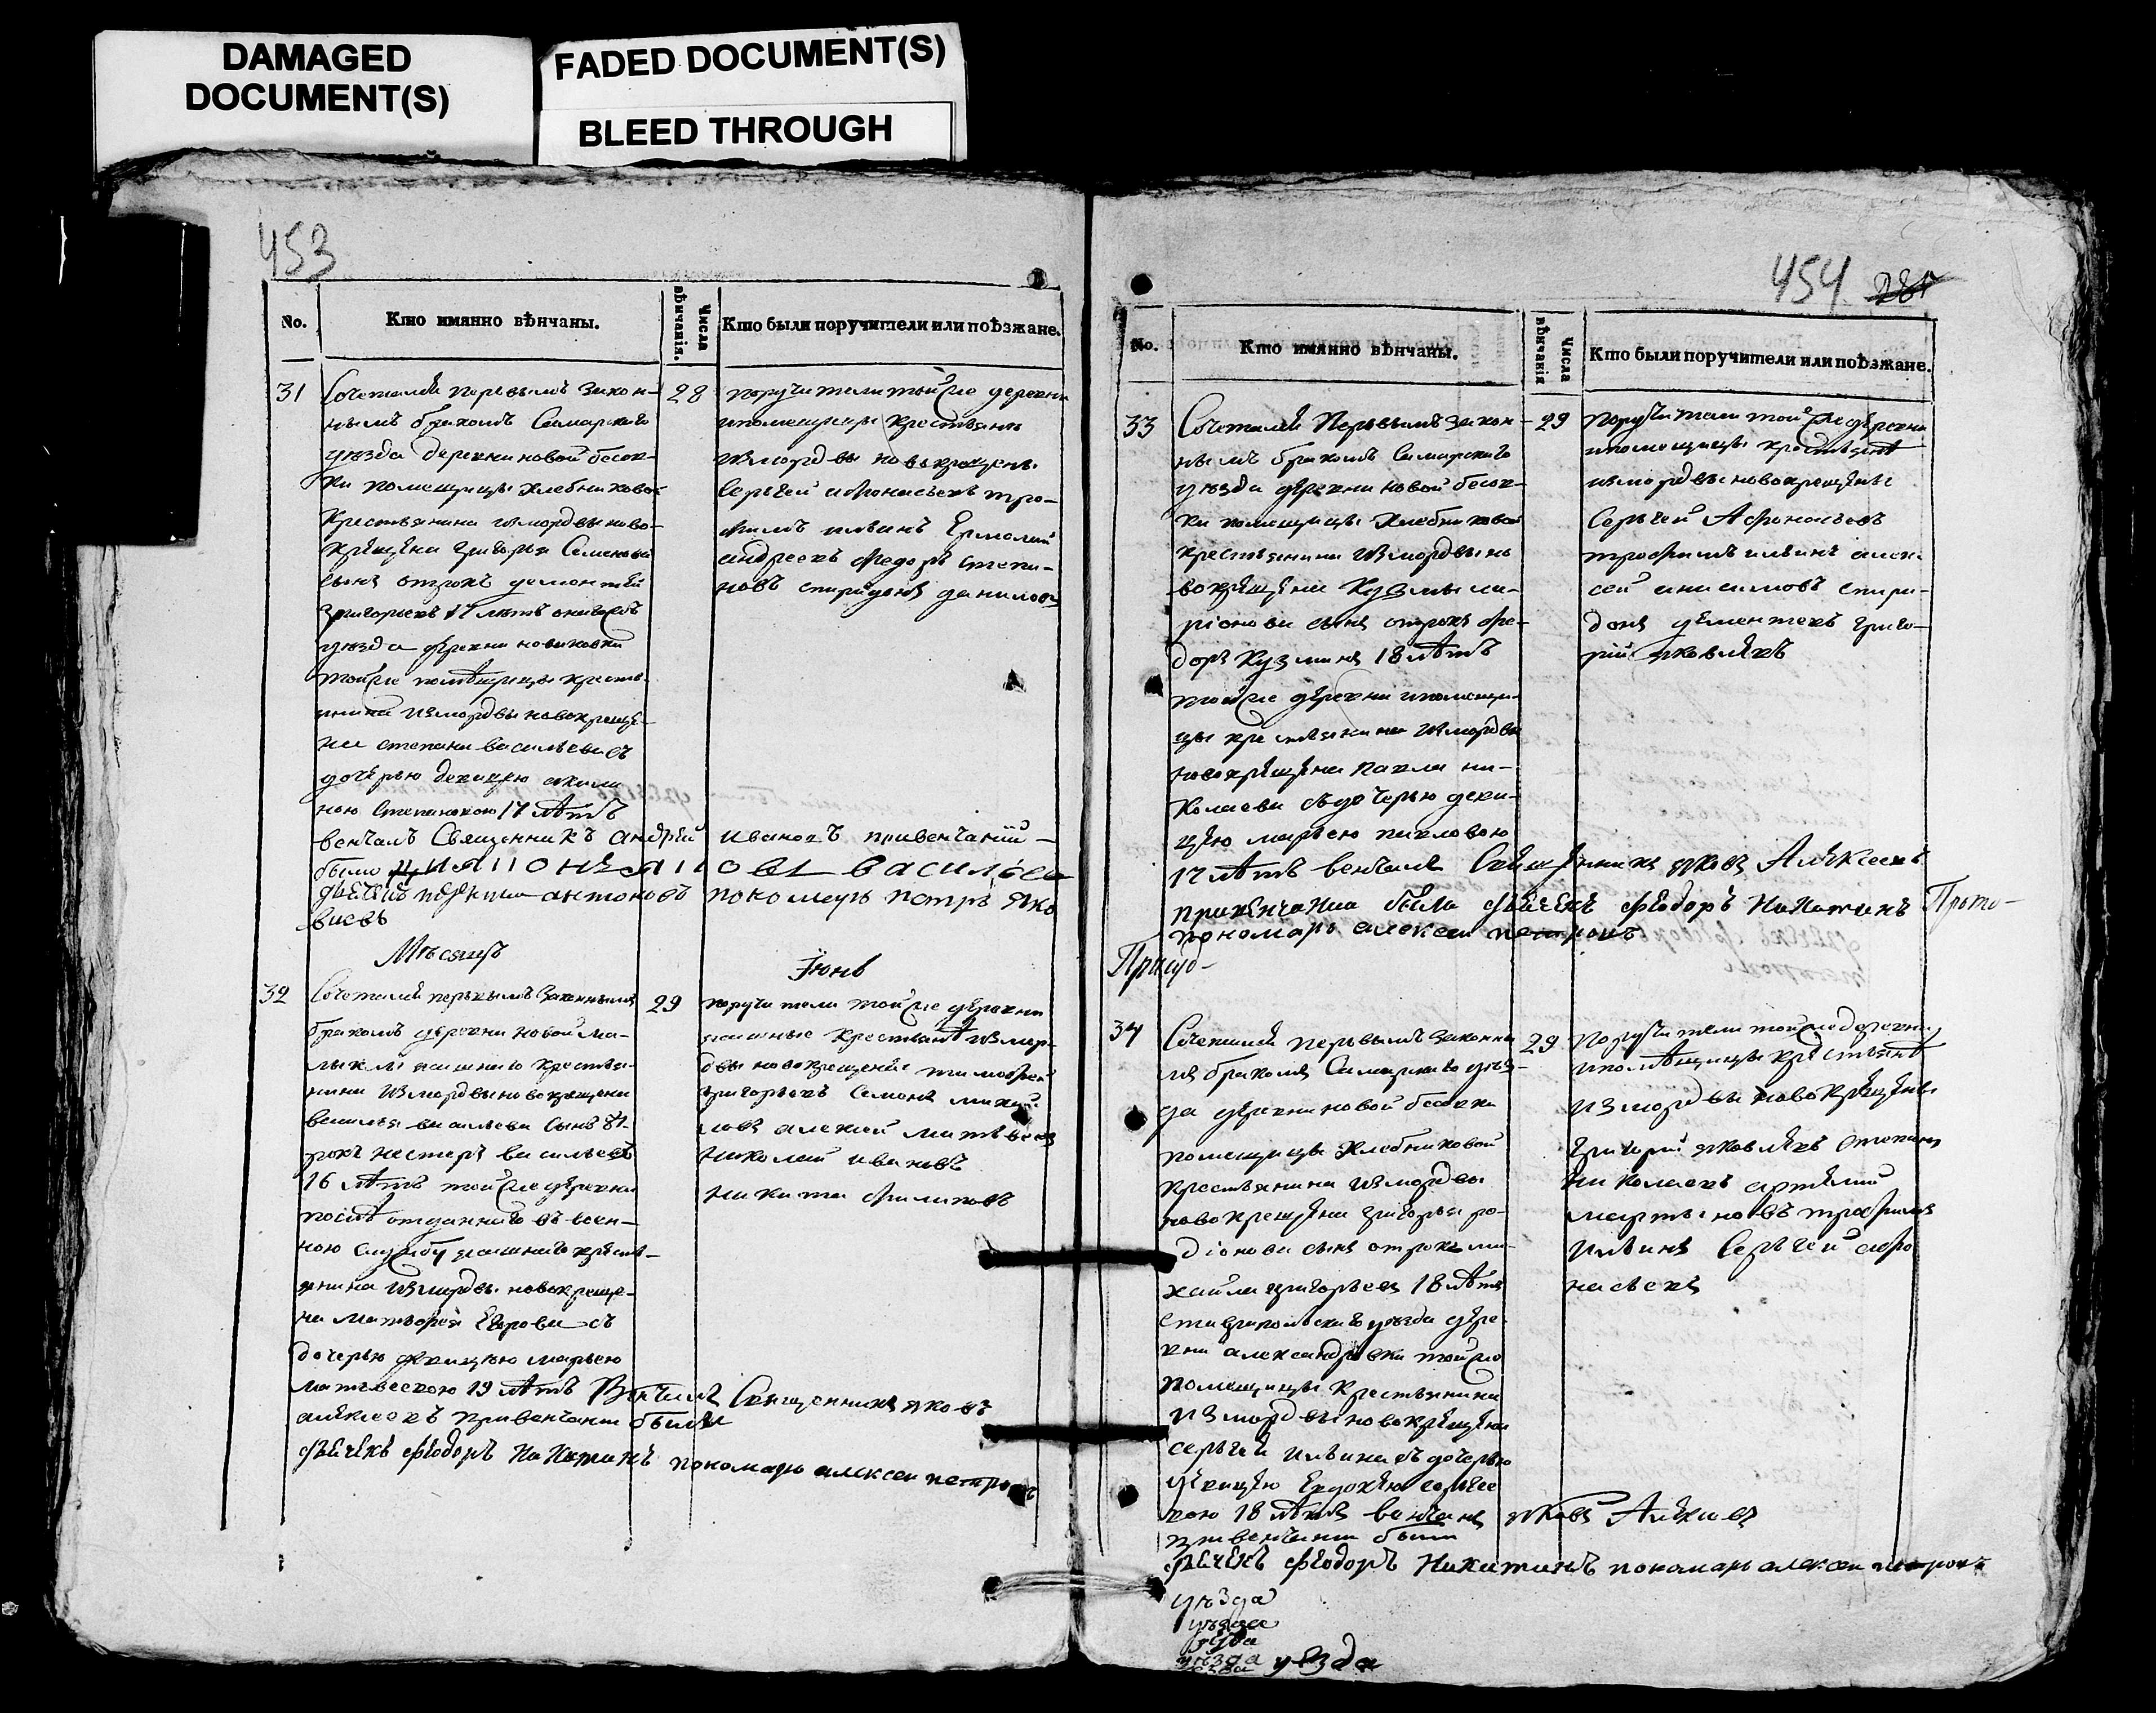 DAMAGED
DOCUMENT(S)
FADED DOCUMENT(S)
BLEED THROUGH
453
No.
Кто имянно вѣнчаны.
Числа вѣнчанія.
Кто были поручители или поѣзжане.
31
28
Сочетались первымъ закон-
нымъ бракомъ Самарскаго
уѣзда деревни новой бесов-
ки помещицы Хлебниковой
Крестьянина измордвы ново-
крещена Григорья Семенова
сынъ отрокъ дементей
Григорьевъ 17 лѣтъ
уѣзда деревни новиковки
тойже помѣщицы кресть-
янина измордвы новокреще-
на степана васильева съ
дочерью девицею акили
ною Степановою 17 лѣтъ
венчалъ Священникъ Андрей Ивановъ привенчаніи
было
антоновъ пономарь петръ Яко
влевъ
поручители тойже деревни
ипомещицы крестьяне
измордвы новокрещены
Сергей афонасьевъ тро-
фимъ ильинъ Ермолай
андреевъ Федоръ степа-
новъ спиридонъ даниловъ
Мѣсяцъ
Іюнь
32
29
Сочетались первымъ законнымъ
бракомъ деревни новой ма-
лыклы яшнаго крестья-
нина измордвы новокрещена
василья васильева сынъ от-
рокъ нестеръ васильевъ
16 лѣтъ тойже деревни
послѣ отданнаго въ воен-
ную службу яшнаго кресть-
янина измордвы новокреще-
на матвея Егорова съ
дочерью девицею марьею
матвеевою 19 лѣтъ Венчалъ Священникъ яковъ
алексеевъ привенчани были
дьячекъ Феодоръ Никитинъ пономарь алексеи петровъ
поручители тойже деревни
яшные крестьянѣ измор-
двы новокрещение тимофей
григорьевъ Семенъ михай
ловъ алексей матвеевъ
николай ивановъ
никита филиповъ
454
No.
Кто имянно вѣнчаны.
Числа вѣнчанія
Кто были поручители или поѣзжане.
33
29
Сочетались Первымъ закон-
нымъ бракомъ Самарскаго
уѣзда деревни новой бесов-
ки помещицы Хлебниковой
крестьянина измордвы но
вокрещена Кузмы ла-
ріонова сынъ отрокъ Фе-
доръ Кузминъ 18 лѣтъ
тойже деревни ипомещи-
цы крестьянина измордвы
новокрещена Павла ни-
колаева съдочерью деви-
цею марьею павловою
17 лѣтъ венчалъ Священникъ яковъ Алексеевъ
привенчании были дьячекъ Феодоръ Никитинъ
пономарь алексеи петровъ
поручители тойже деревни
ипомещицы крестьянѣ
измордвы новокрещены
Сергей Афонасьевъ
трофимъ ильинъ алек
сей анисимовъ спири-
донъ дементевъ григо-
рий яковлевъ
34
29
Сочетались первымъ законны
мъ бракомъ Самарскаго уѣз-
да деревни новой бесовки
помещицы Хлебниковой
Крестьянина измордвы
новокрещена григорья ро-
діонова сынъ отрокъ ми-
хайла григорьевъ 18 лѣтъ
ставропольскаго уѣзда дере-
вни александровки тойже
помещицы Крестьянина
измордвы новокрещена
сергея ильина съ дочерью
девицею Евдокѣю сергее
вою 18 лѣтъ венчанъ яковъ Алексеевъ
привенчании были
дьячекъ Феодоръ Никитинъ пономарь алексеи петровъ
поручители тойже деревни
ипомѣщицы крестьянѣ
измордвы новокрещены
григорий яковлевъ степанъ
николаевъ артемий
мартыновъ трофимъ
ильинъ Сергей афо
насьевъ
уѣзда
уѣзда
уѣзда
уѣзда